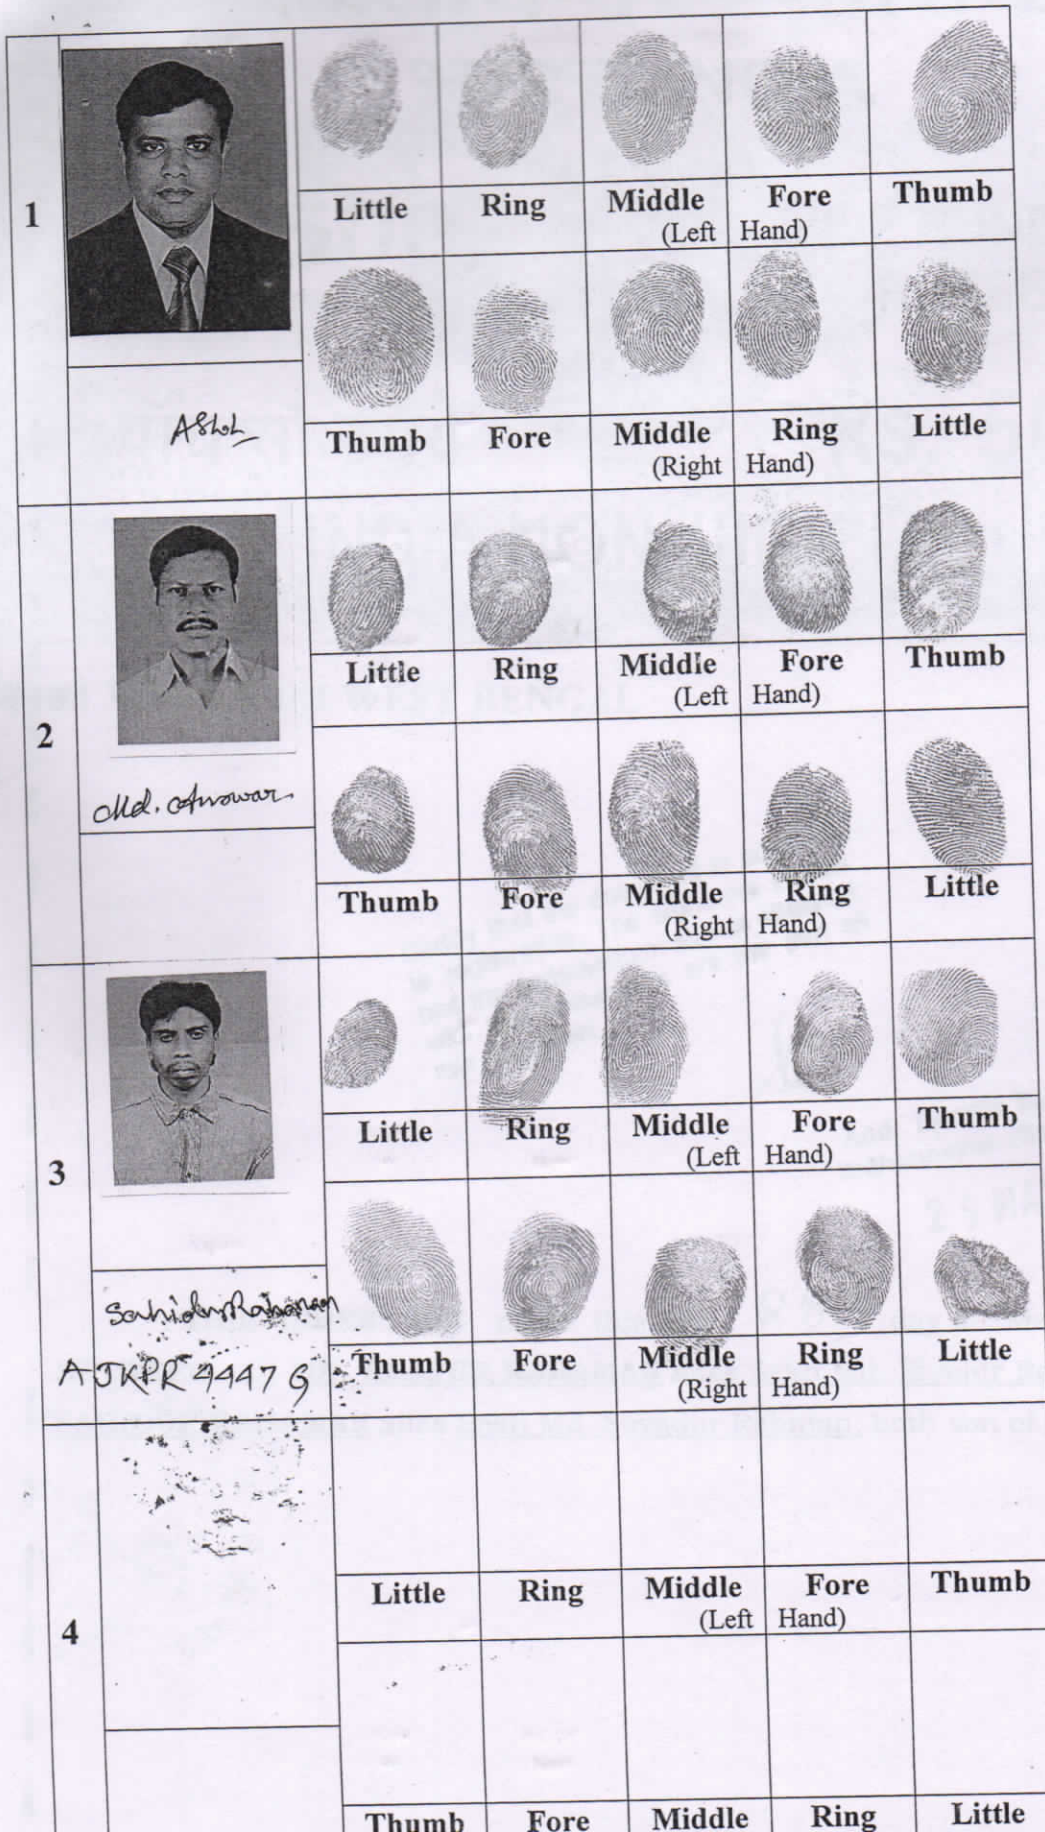 1
Little Ring Middle Fore Thumb
(Left Hand)
Thumb Fore Middle Ring Little
(Right Hand)
2
Md. Anowar
Little Ring Middle Fore Thumb
(Left Hand)
Thumb Fore Middle Ring Little
(Right Hand)
3
Little Ring Middle Fore Thumb
(Left Hand)
AJKPR 4447 G
Thumb Fore Middle Ring Little
(Right Hand)
4
Little Ring Middle Fore Thumb
(Left Hand)
Thumb Fore Middle Ring Little